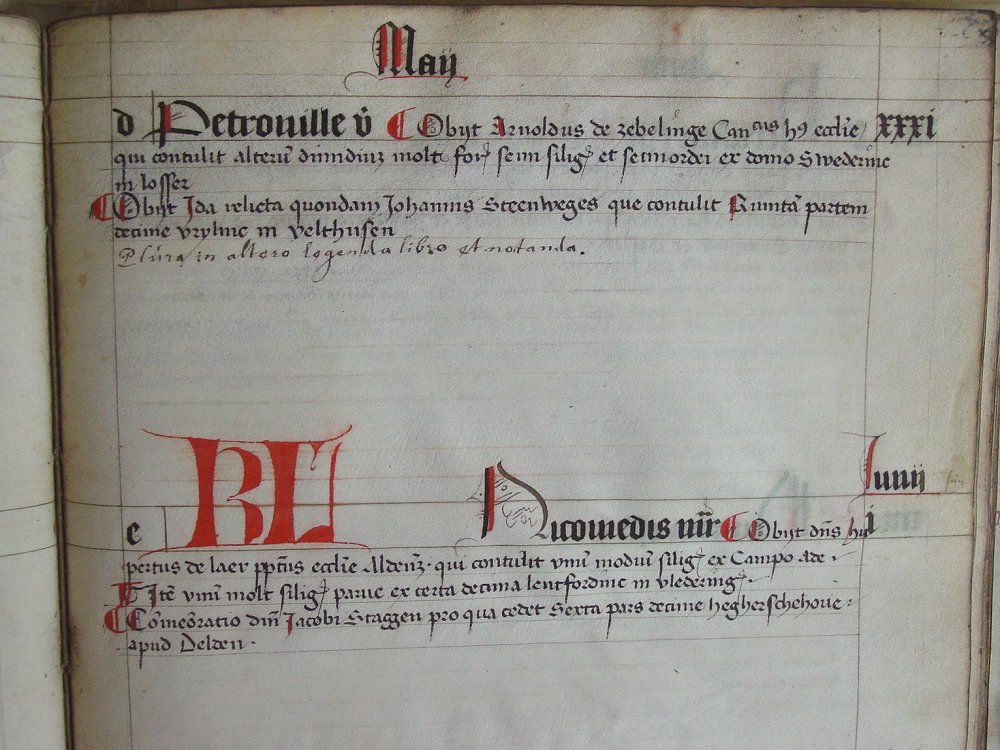 Maij
d Petronille v̄ Obijt Arnoldus de zebelinge Can^cus h9 ecclie xxxi
qui contulit alterū dimidiuz molt semi silig et semi ordei ex domo Swederinc
in losser
Obijt Ida relicta quondam Johannis Steenweges que contulit Quintā partem
decime vrylinc in velthusen
Plura in altero legenda libro et notanda.
Junij
e KL Nicomedis mr̄ Obijt dn̄s hu i
pertus de laer ppt̄us ecclie Aldenz· qui contulit vnū modiū silig ex Campo Ade·
Itē vnū molt silig parue ex certa decima lentfordinc in vledering·
Cōmeōratio dn̄i Jacobi Staggen pro qua cedet Sexta pars decime hegherschehoue
apud Delden·